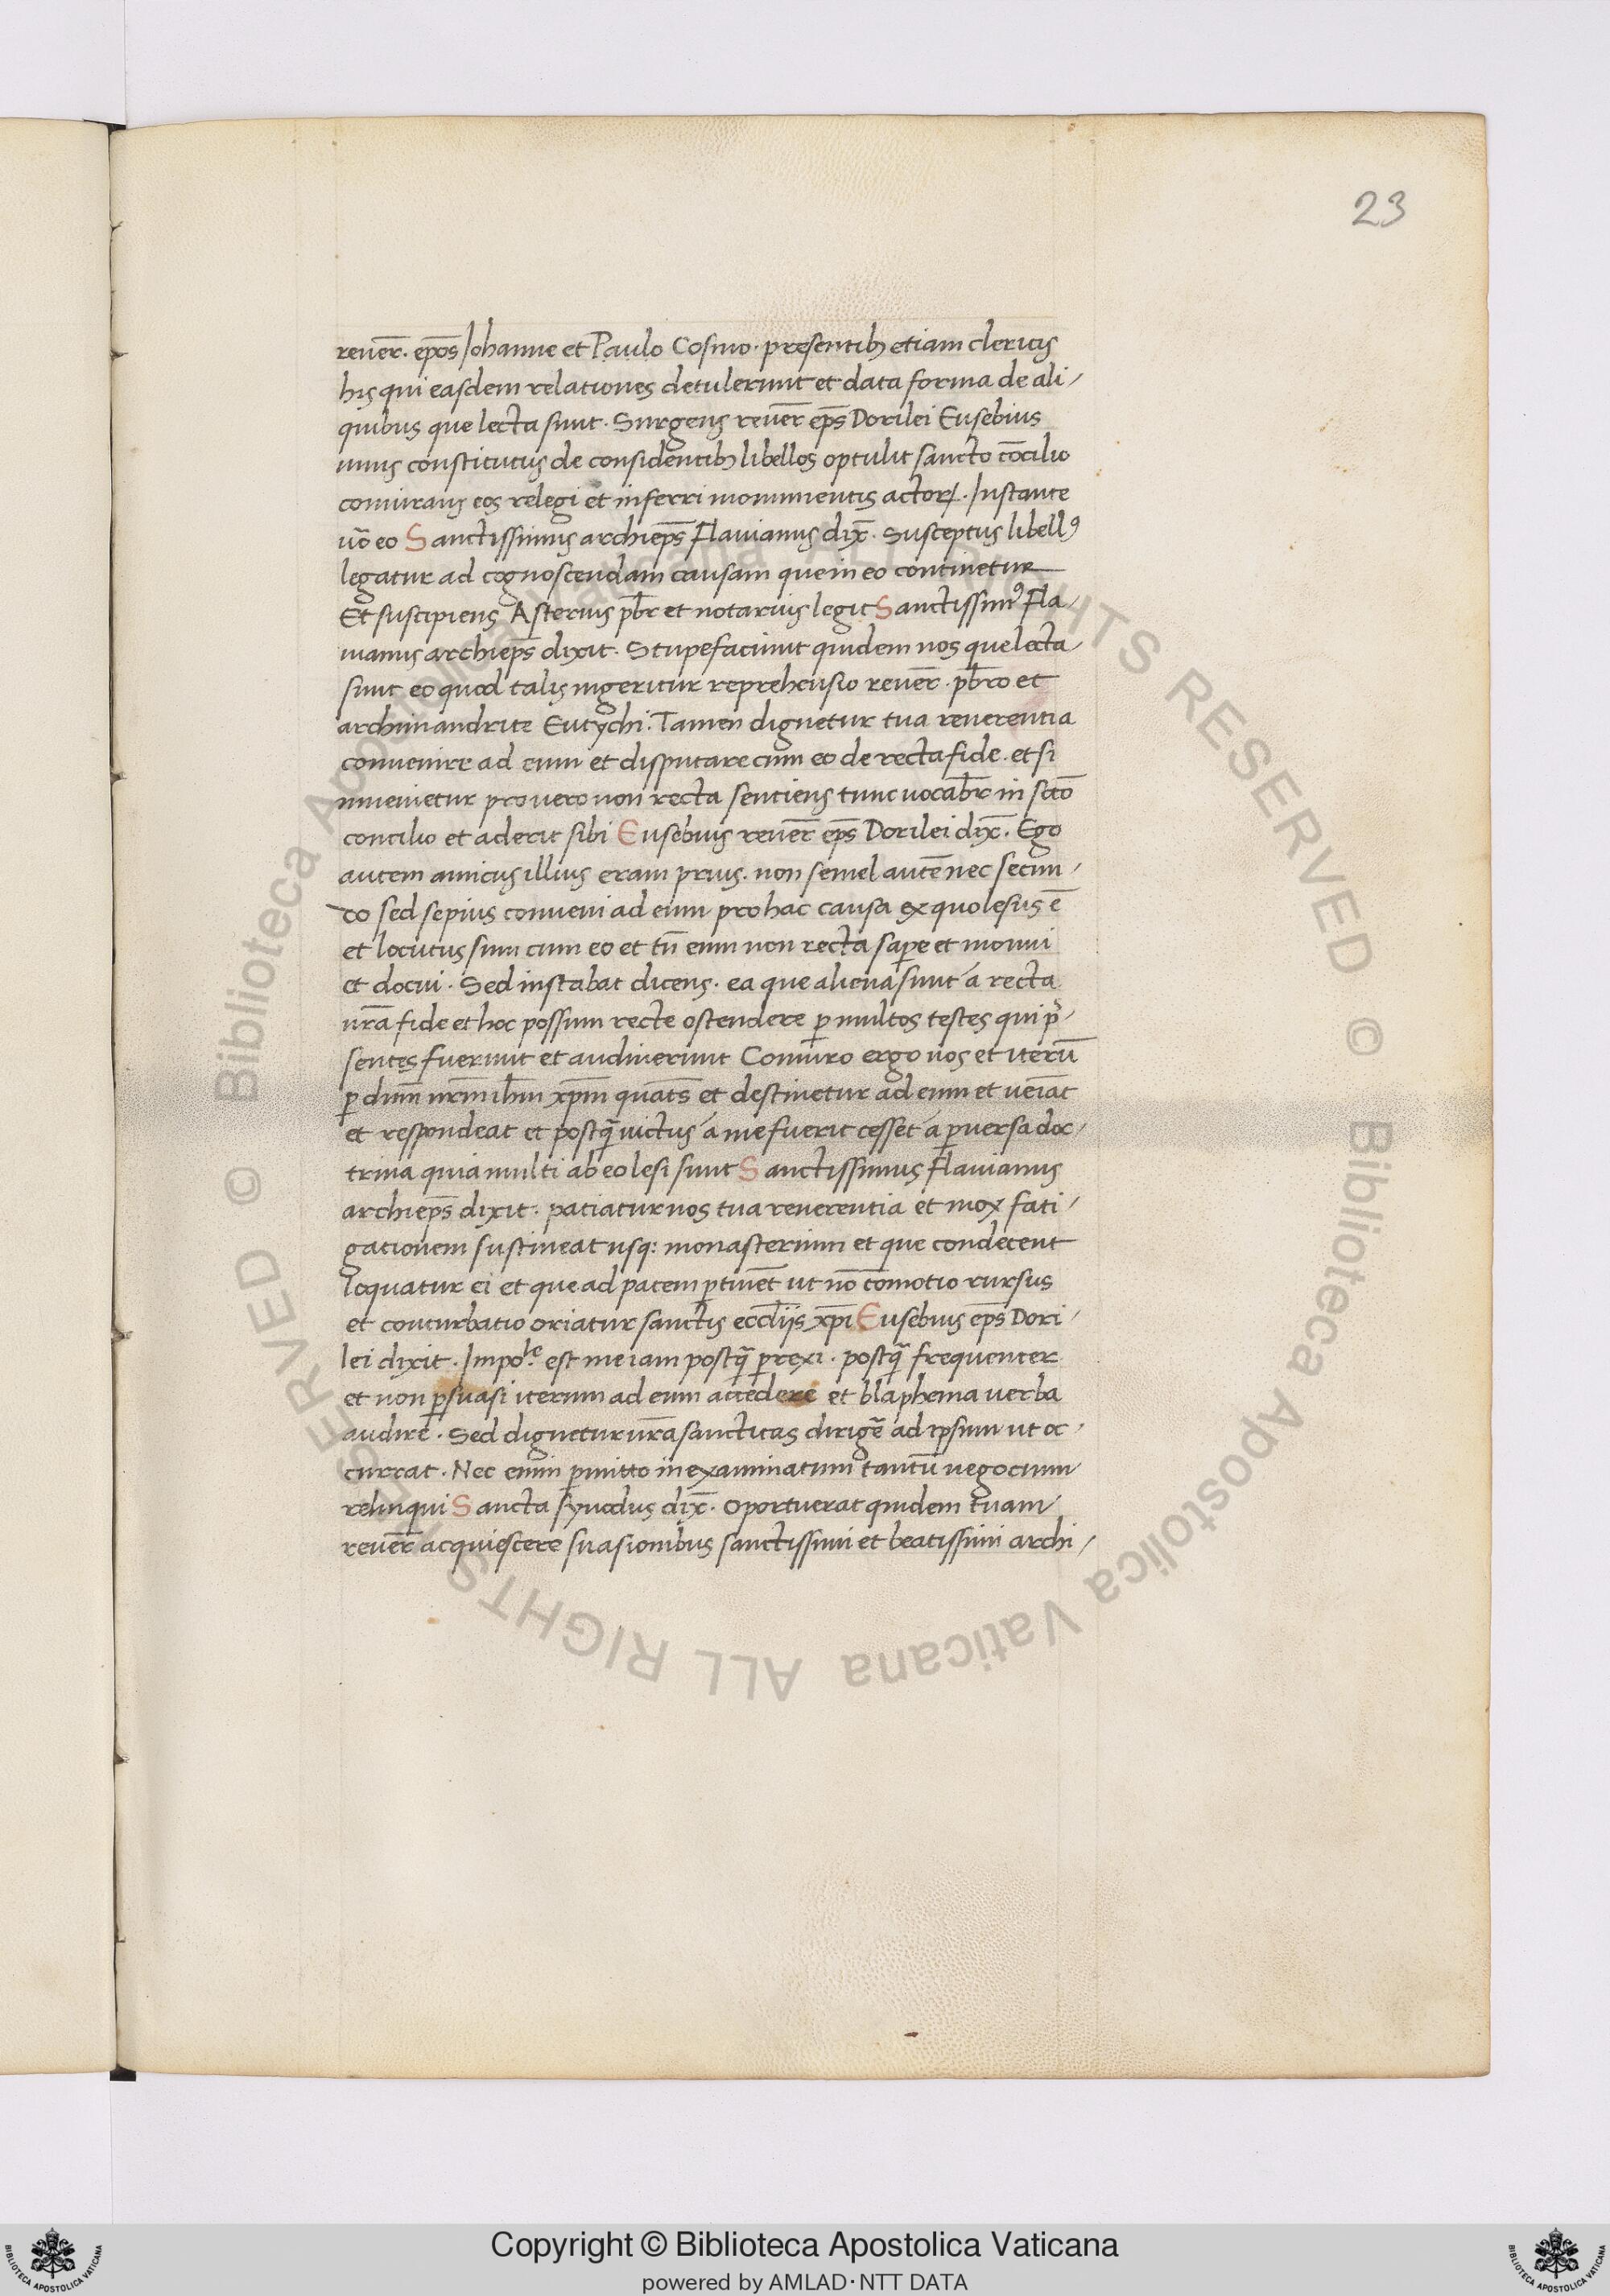 23
reuer̄. epōs Johanne et Paulo Cosmo. presentib; etiam clericis
his qui easdem relationes detulerunt et data forma de ali-
quibus que lecta sunt. Surgens reuer̄ ep̄s Dorilei Eusebius
unus constitutus de considentib; libellos optulit sancto cōcilio
coniurans eos relegi et inferri monimentis actorꝝ. Instante
uō eo Sanctissimus archiep̄s Flauianus dix̄. Susceptus libellꝰ
legatur ad cognoscendam causam que in eo continetur
Et suscipiens Asterius pb̄r et notarius legit Sanctissimꝰ Fla-
uianus archiep̄s dixit. Stupefaciunt quidem nos que lecta
sunt eo quod talis ingeritur reprehensio reuer̄. pb̄ro et
archimandrite Eutychi. Tamen dignetur tua reuerentia
conuenire ad eum et disputare cum eo de recta fide. et si
inuenietur pro uero non recta sentiens tunc uocab̄r in sc̄tō
concilio et aderit sibi Eusebius reuer̄ ep̄s Dorilei dix̄. Ego
autem amicus illius eram prius. non semel autē nec secun-
do sed sepius conueni ad eum pro hac causa ex quo lesus ē
et locutus sum cum eo et tn̄ eum non recta sap̲e et monui
et docui. Sed instabat dicens. ea que aliena sunt á recta
ur̄a fide et hoc possum recte ostendere ꝑ multos testes qui p̄-
sentes fuerunt et audiuerunt Coniuro ergo uos et iterū
ꝑ dūm nr̄m ih̄m xp̄m quāts et destinetur ad eum et ueīat
et respondeat et postq̄ uictus á me fuerit cesset á ꝑuersa doc-
trina quia multi ab eo lesi sunt Sanctissimus Flauianus
archiep̄s dixit. patiatur nos tua reuerentia et mox fati-
gationem sustineat usq: monasterium et que condecent
loquatur ei et que ad pacem ꝑtinēt ut nō cōmotio rursus
et conturbatio oriatur sanctis eccl̄iis xp̄i Eusebius ep̄s Dori-
lei dixit. Impo.le est me iam postq̄ ꝑrexi. postq̄ frequenter
et non ꝑsuasi iterum ad eum accedere et blaphema uerba
audire. Sed dignetur ur̄a sanctitas dirigē ad ipsum ut oc-
currat. Nec enim ꝑmitto inexaminatum tantū negocium
relinqui Sancta synodus dix̄. Oportuerat quidem tuam
reuer̄ acquiescere suasionibus sanctissimi et beatissimi archi-
Copyright © Biblioteca Apostolica Vaticana
powered by AMLAD·NTT DATA